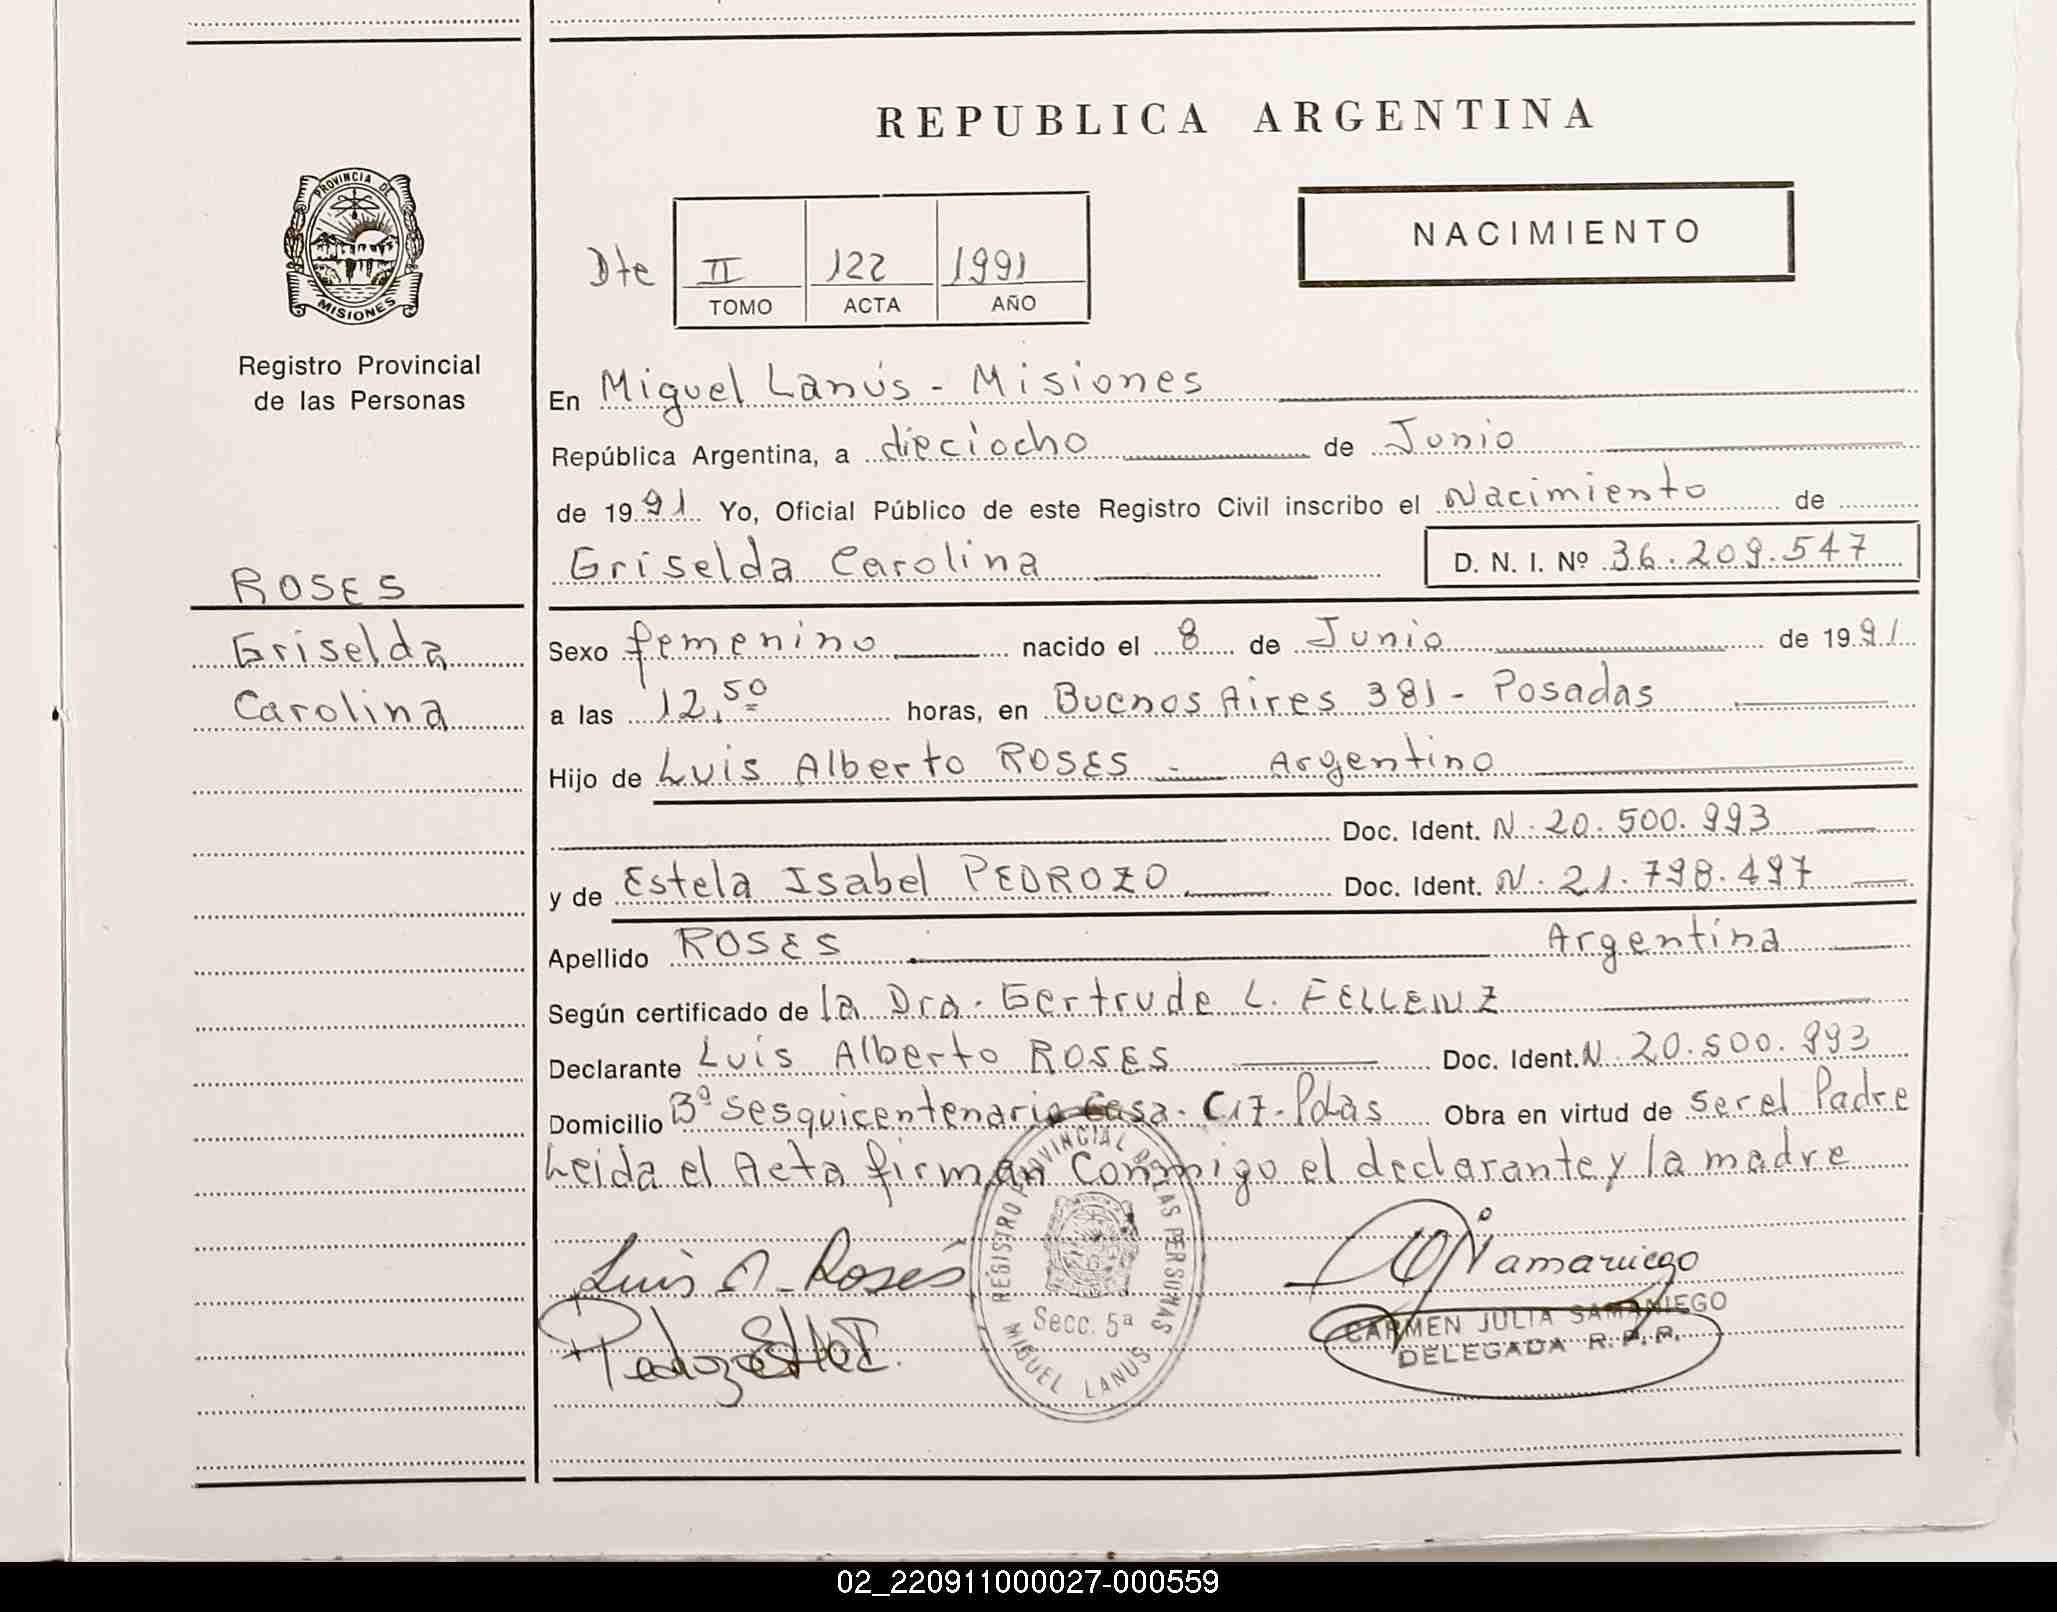 REPUBLICA ARGENTINA
PROVINCIA DE
MISIONES
Registro Provincial
de las Personas
NACIMIENTO
Dte II 122 1991
TOMO ACTA AÑO
En Miguel Lanús - Misiones
República Argentina, a dieciocho de Junio
de 1991 Yo, Oficial Público de este Registro Civil inscribo el Nacimiento de
Griselda Carolina D. N. I. Nº 36.209.547
ROSES
Griselda
Carolina
Sexo femenino nacido el 8 de Junio de 1991
a las 12,50 horas, en Buenos Aires 381 - Posadas
Hijo de Luis Alberto ROSES - Argentino
Doc. Ident. N. 20.500.993
y de Estela Isabel PEDROZO Doc. Ident. N. 21.798.497
Apellido ROSES Argentina
Según certificado de la Dra. Gertrude L. FELLENZ
Declarante Luis Alberto ROSES Doc. Ident. N. 20.500.993
Domicilio Bº Sesquicentenario Casa. C17. Pdas Obra en virtud de ser el Padre
Leida el Acta firman Conmigo el declarante y la madre
Luis A. Rosés
REGISTRO PROVINCIAL DE LAS PERSONAS
Secc. 5ª
MIGUEL LANUS
CARMEN JULIA SAMANIEGO
DELEGADA R. P. P.
02_220911000027-000559